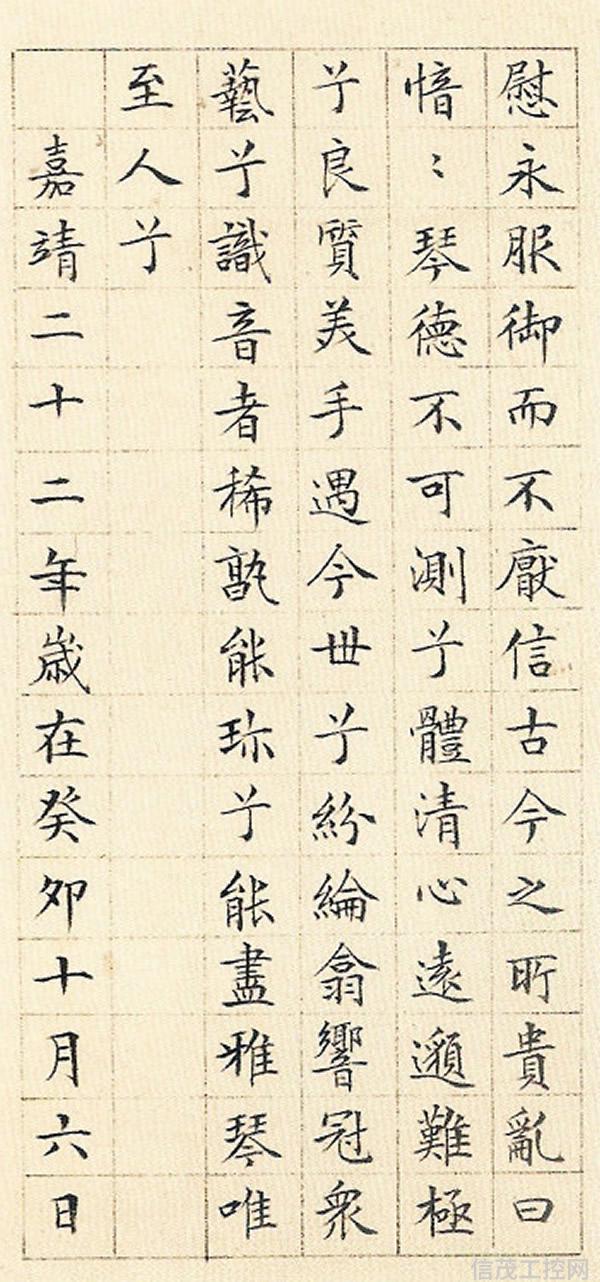 慰永服御而不厭信古今之所貴亂曰
愔〻琴德不可測兮體清心遠邈難極
兮良質美手遇今世兮紛綸翕響冠衆
藝兮識音者稀孰能珎兮能盡雅琴唯
至人兮
嘉靖二十二年歲在癸卯十月六日
信茂工控网